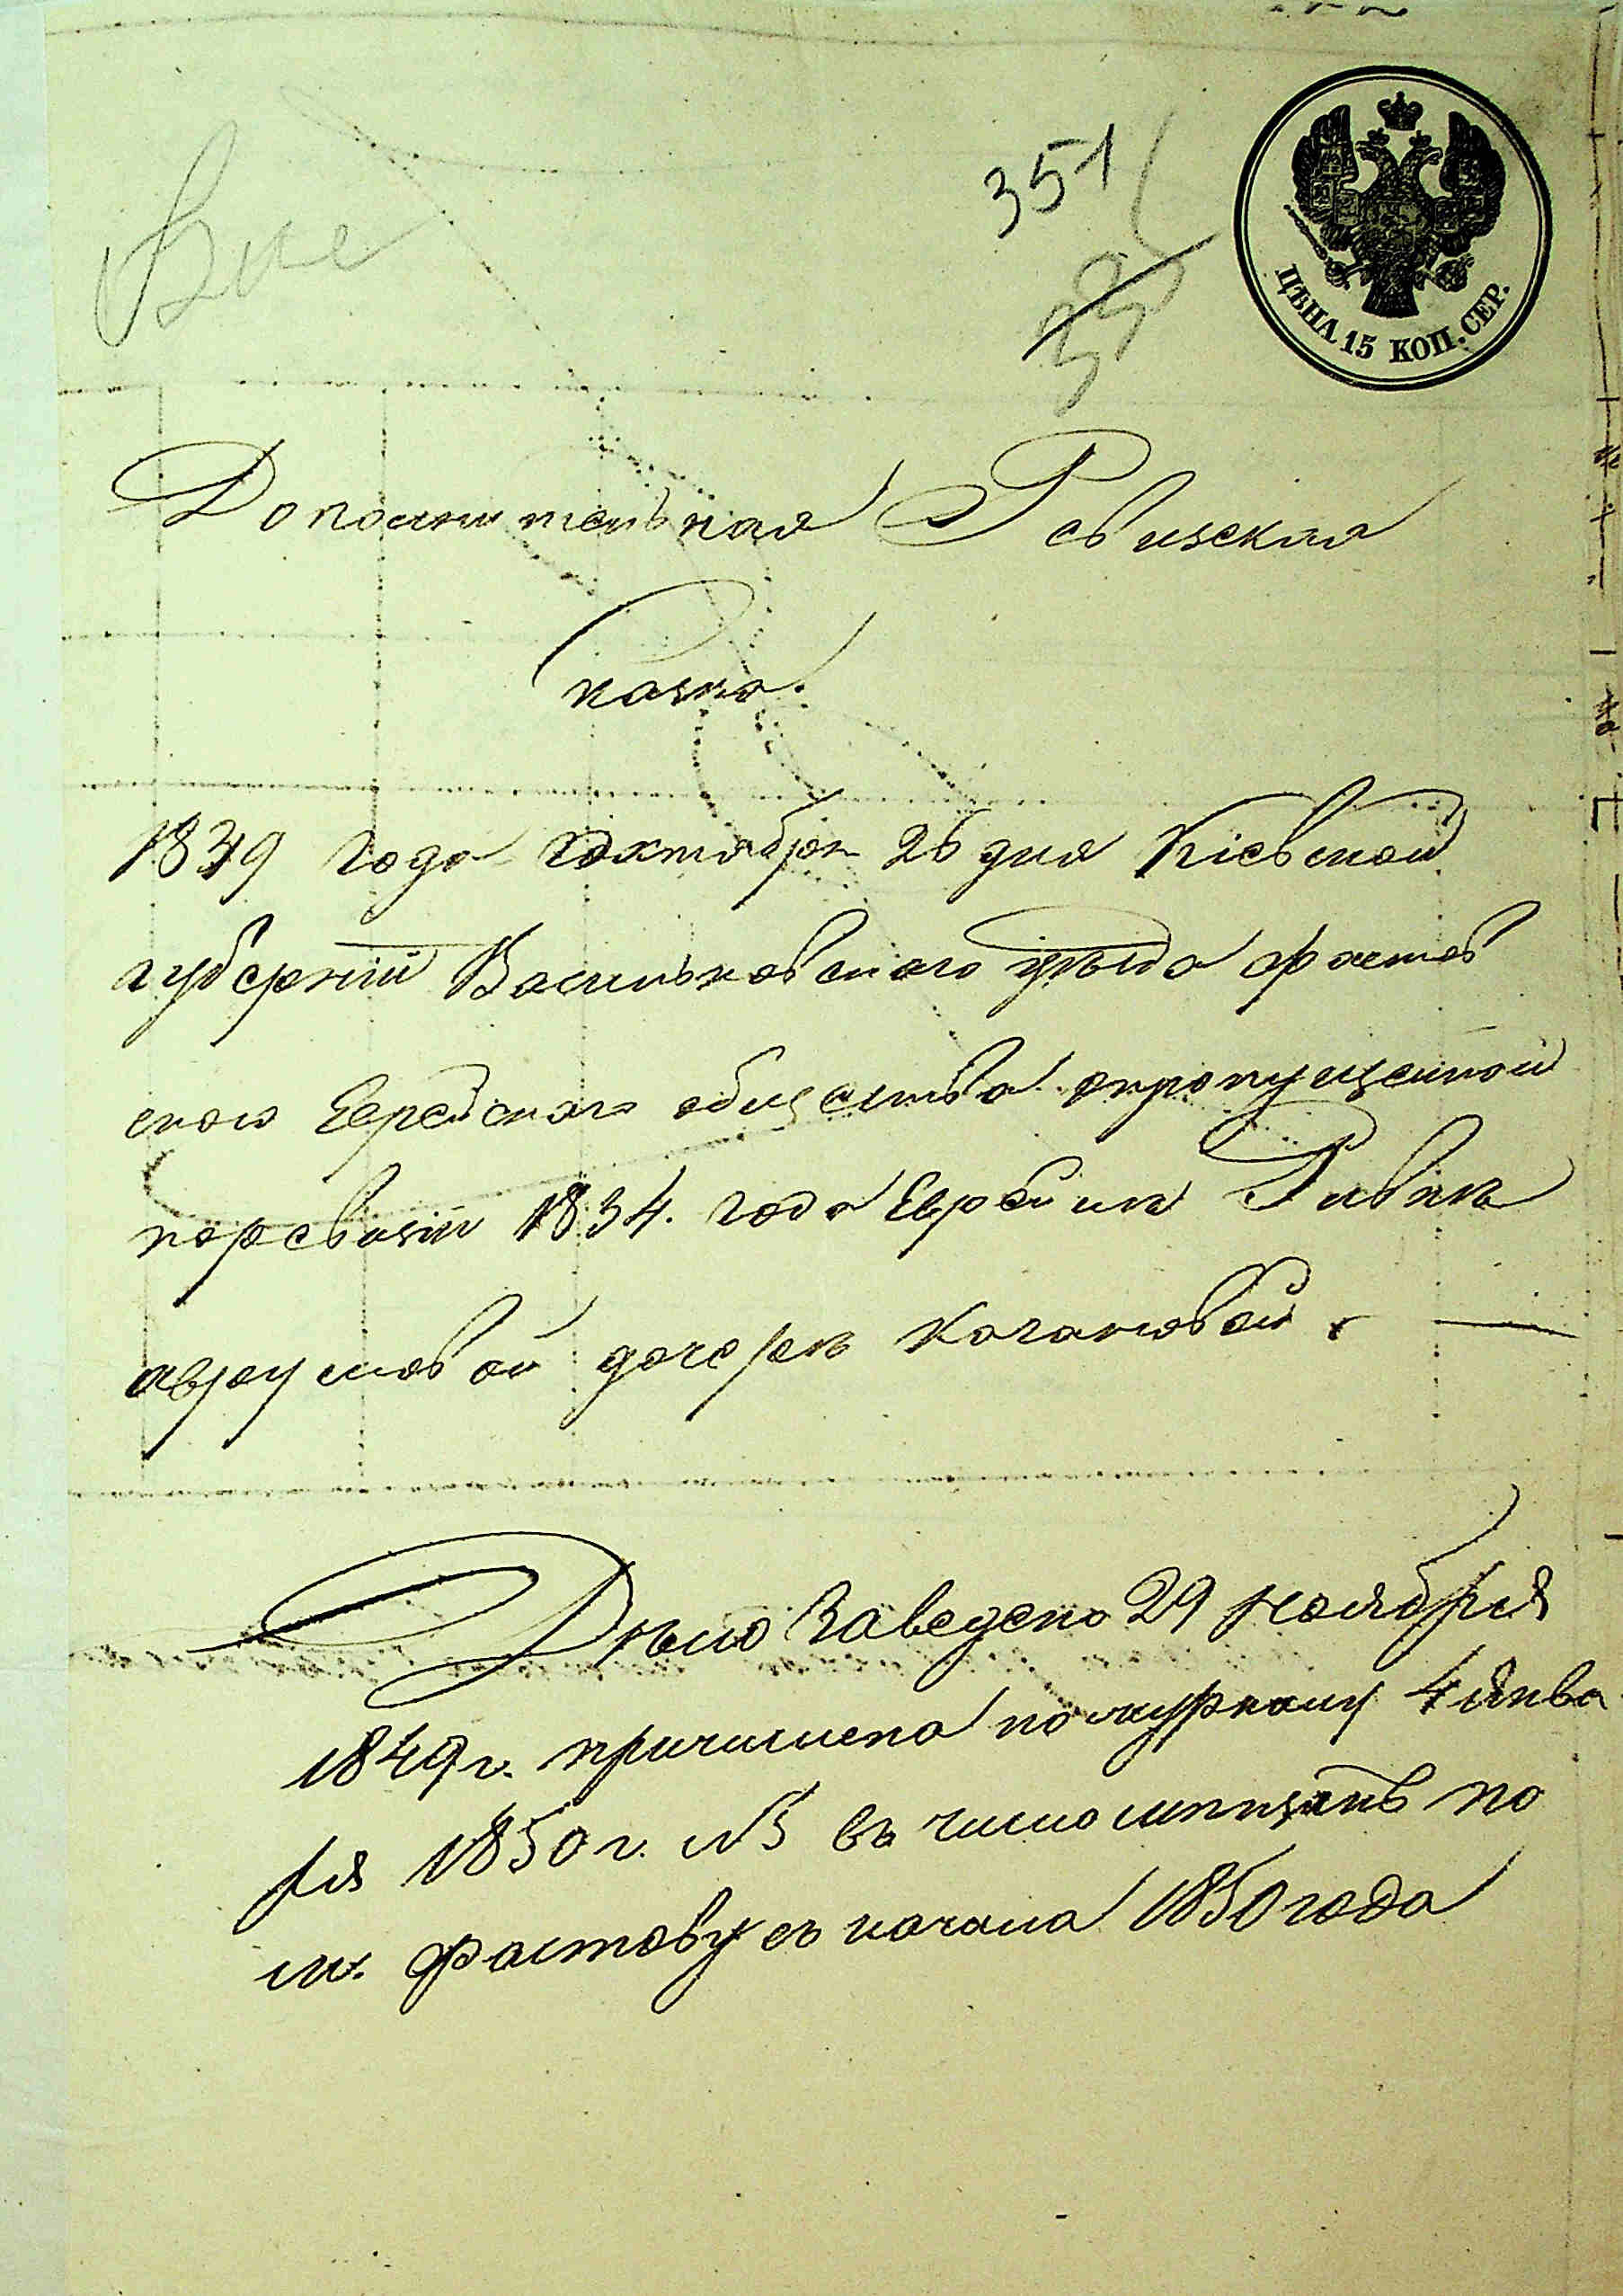 351
ЦѢНА 15 КОП. СЕР.
Дополнительная Ревизская
сказка.
1849 года октября 26 дня Кіевской
губерніи Васильковскаго уѣзда фастов
скаго Еврейскаго общества опропущенной
поревизіи 1834. года Еврейкѣ Ривкѣ
аврумовой дочерѣ Кагановой. —
Дѣло заведено 29 ноября
1849 г. причислена пожурналу 4 янва
ря 1850 г. №5 въ число мѣщанъ по
м. Фастову съ начала 1850 года